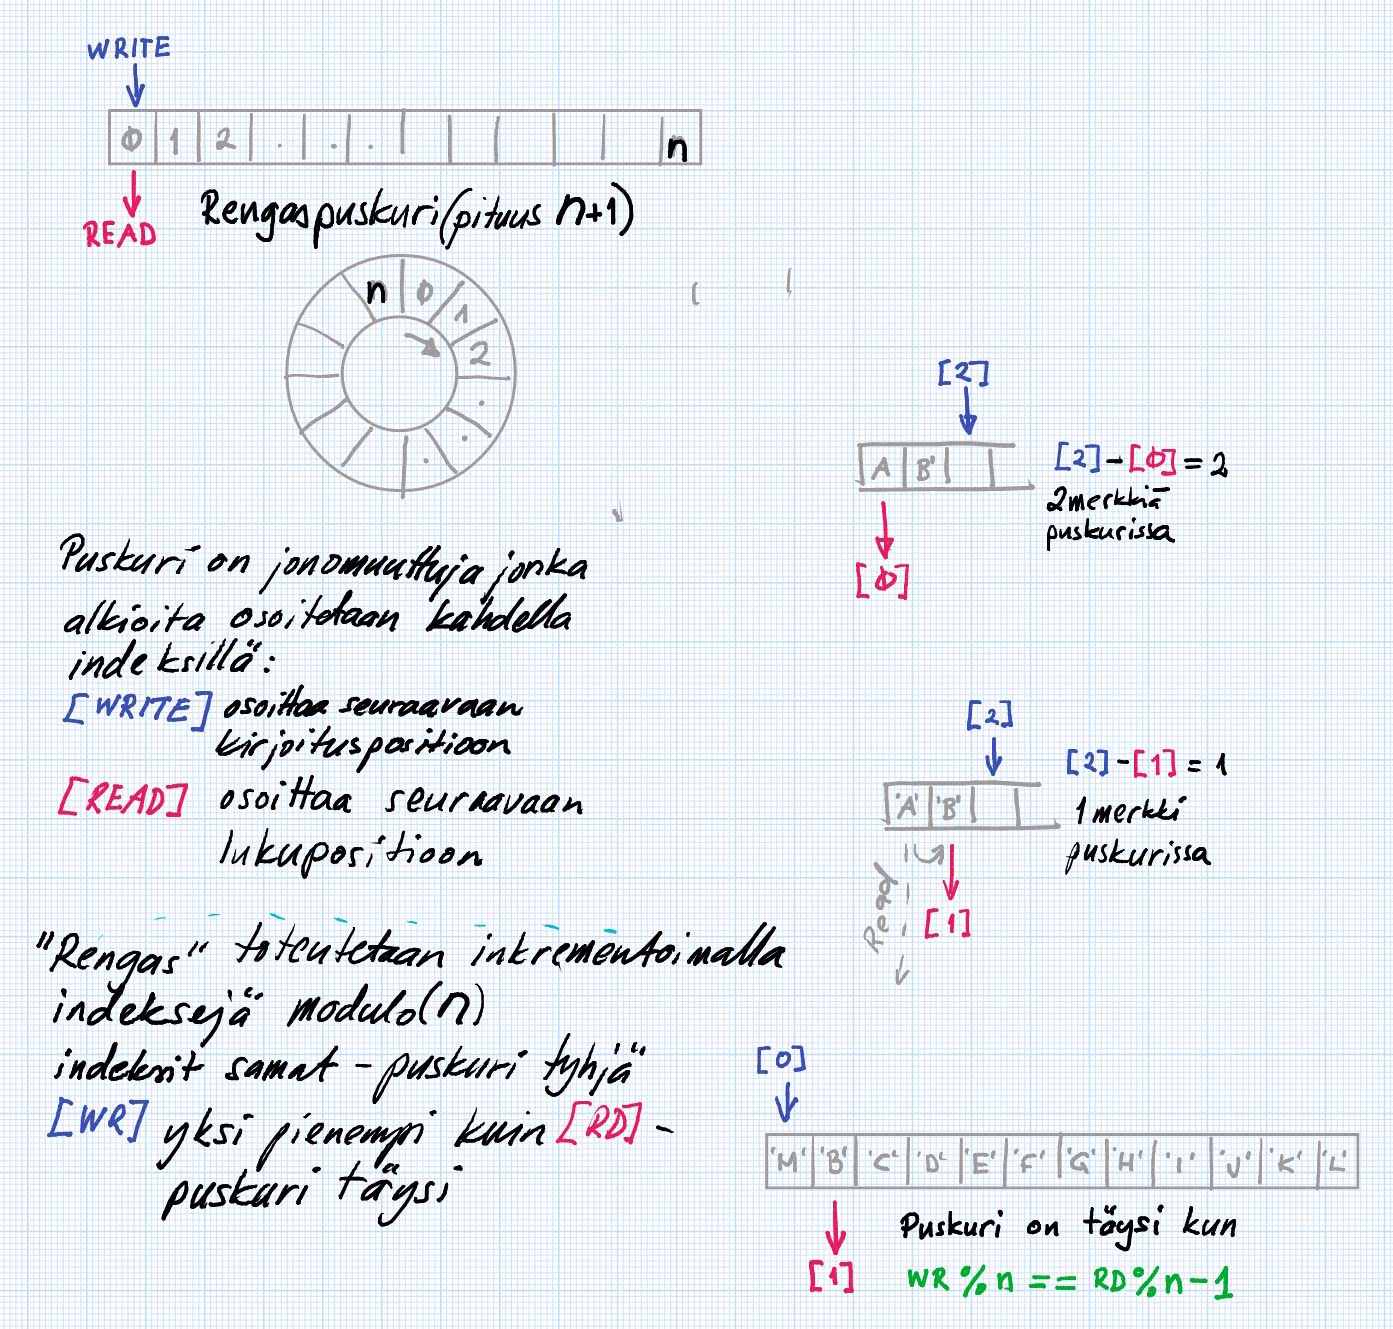 WRITE
0 1 2 . . . n
READ
Rengaspuskuri (pituus n+1)
n 0 1 2 . . .
Puskuri on jonomuuttuja jonka
alkioita osoitetaan kahdella
indeksillä:
[WRITE] osoittaa seuraavaan
kirjoituspositioon
[READ] osoittaa seuraavaan
lukupositioon
"Rengas" toteutetaan inkrementoimalla
indeksejä modulo(n)
indeksit samat - puskuri tyhjä
[WR] yksi pienempi kuin [RD] -
puskuri täysi
[2]
A B'
[2]-[0] = 2
2 merkkiä
puskurissa
[0]
[2]
'A' 'B'
[2]-[1] = 1
1 merkki
puskurissa
Read
[1]
[0]
'M' 'B' 'C' 'D' 'E' 'F' 'G' 'H' 'I' 'J' 'K' 'L'
[1]
Puskuri on täysi kun
WR % n == RD % n - 1